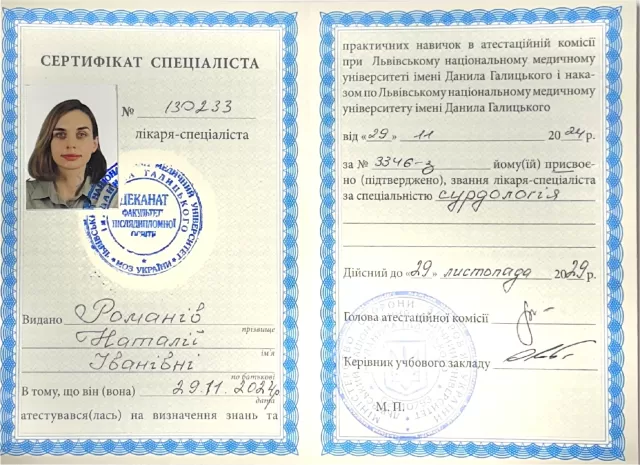 СЕРТИФІКАТ СПЕЦІАЛІСТА
№ 130233
лікаря-спеціаліста
ДЕКАНАТ
ФАКУЛЬТЕТ
ПІСЛЯДИПЛОМНОЇ
ОСВІТИ
МОЗ УКРАЇНИ
Видано Романів
прізвище
Наталії
ім'я
Іванівні
по батькові
В тому, що він (вона) 29.11.2024р
дата
атестувався(лась) на визначення знань та
практичних навичок в атестаційній комісії
при Львівському національному медичному
університеті імені Данила Галицького і нака-
зом по Львівському національному медичному
університету імені Данила Галицького
від «29» 11 2024 р.
за № 3346-з йому(їй) присвоє-
но (підтверджено), звання лікаря-спеціаліста
за спеціальністю сурдологія
Дійсний до «29» листопада 2029 р.
Голова атестаційної комісії
Керівник учбового закладу
М. П.